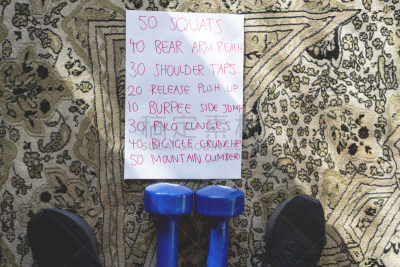 50 SQUATS
40 BEAR ARM REACH
30 SHOULDER TAPS
20 RELEASE PUSH UP
10 BURPEE SIDE JUMP
30 LUNGES
40 BICYCLE CRUNCHE
50 MOUNTAIN CLIMBER